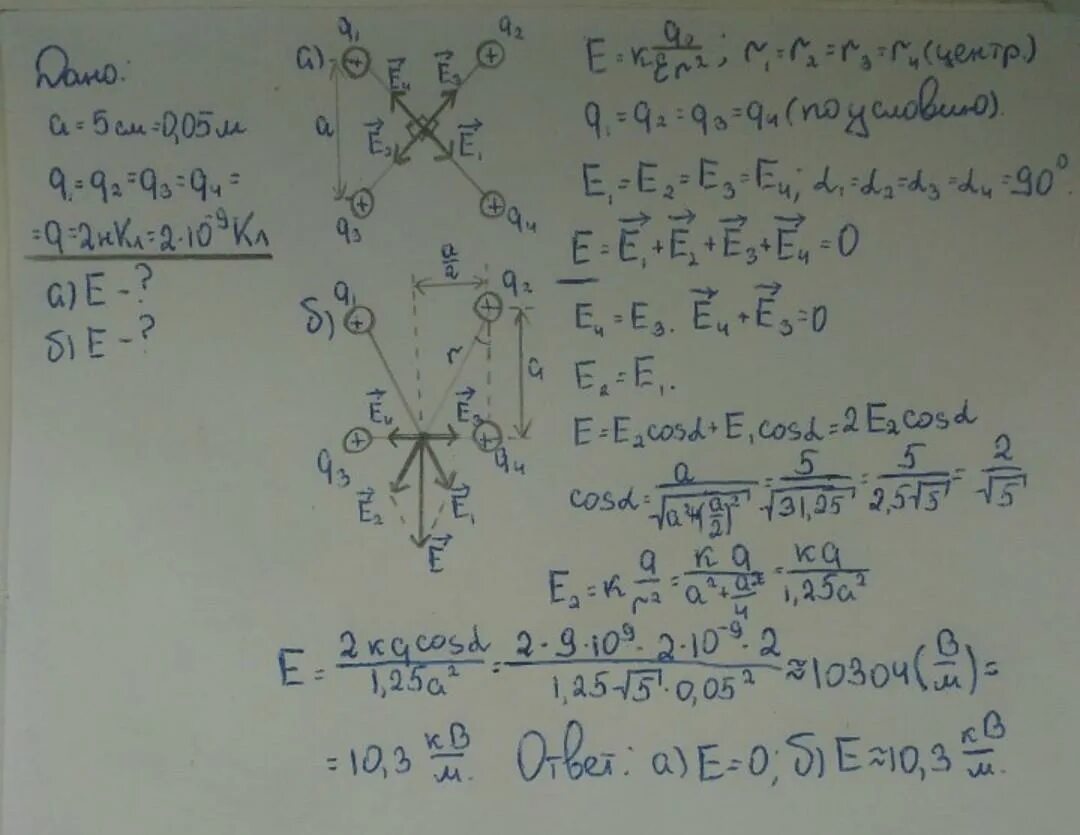 Дано:
a = 5 см = 0,05 м
q₁ = q₂ = q₃ = q₄ =
= q = 2 нКл = 2·10⁻⁹ Кл
а) E - ?
б) E - ?
а)
q₁
q₂
E⃗₄
E⃗₃
a
E⃗₂
E⃗₁
q₃
q₄
б)
q₁
a/2
q₂
r
a
E⃗₄
E⃗₃
q₃
q₄
E⃗₂
E⃗₁
E⃗
E = k q₂/εr²; r₁ = r₂ = r₃ = r₄ (центр.)
q₁ = q₂ = q₃ = q₄ (по условию).
E₁ = E₂ = E₃ = E₄; α₁ = α₂ = α₃ = α₄ = 90°.
E = E⃗₁ + E⃗₂ + E⃗₃ + E⃗₄ = 0
E₄ = E₃. E⃗₄ + E⃗₃ = 0
E₂ = E₁.
E = E₂cosα + E₁cosα = 2E₂cosα
cosα = a/√(a² + (a/2)²) = 5/√31,25 = 5/2,5√5 = 2/√5
E₂ = k q/r² = kq/(a² + a²/4) = kq/1,25a²
E = 2kqcosα/1,25a² = 2·9·10⁹·2·10⁻⁹·2/1,25·√5·0,05² ≈ 10304 (В/м) =
= 10,3 кВ/м. Ответ: а) E = 0; б) E ≈ 10,3 кВ/м.